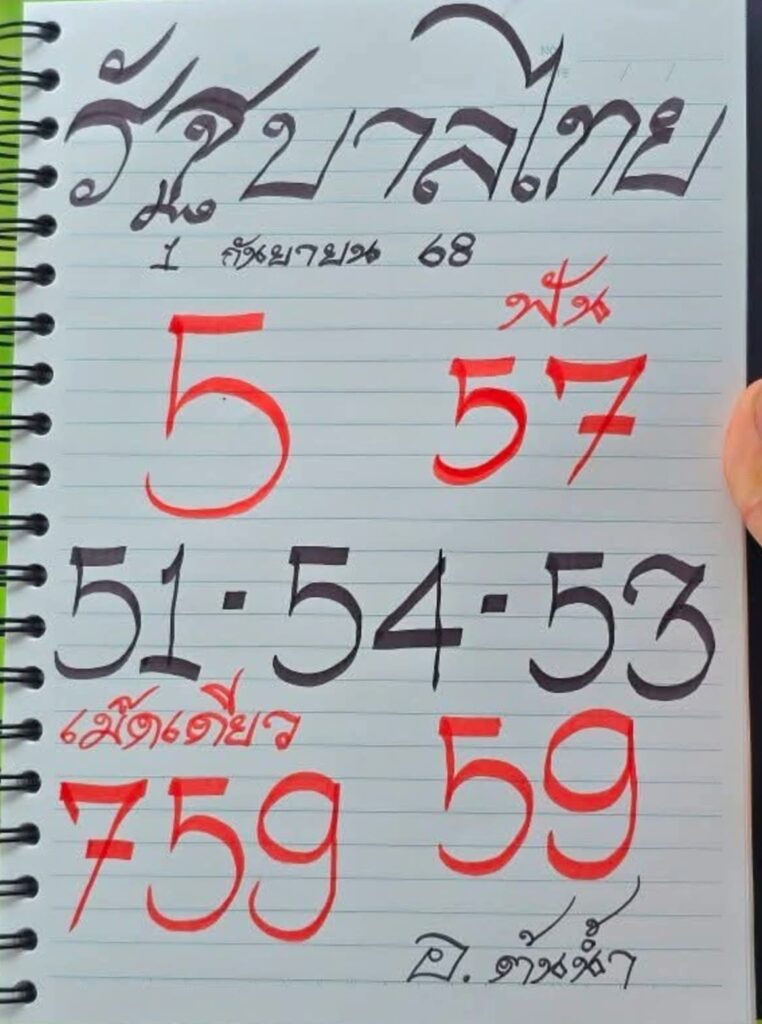 รัฐบาลไทย
1 กันยายน 68
5
ฟัน
57
51 - 54 - 53
เม็ดเดียว
759
59
อ. ต้นน้ำ